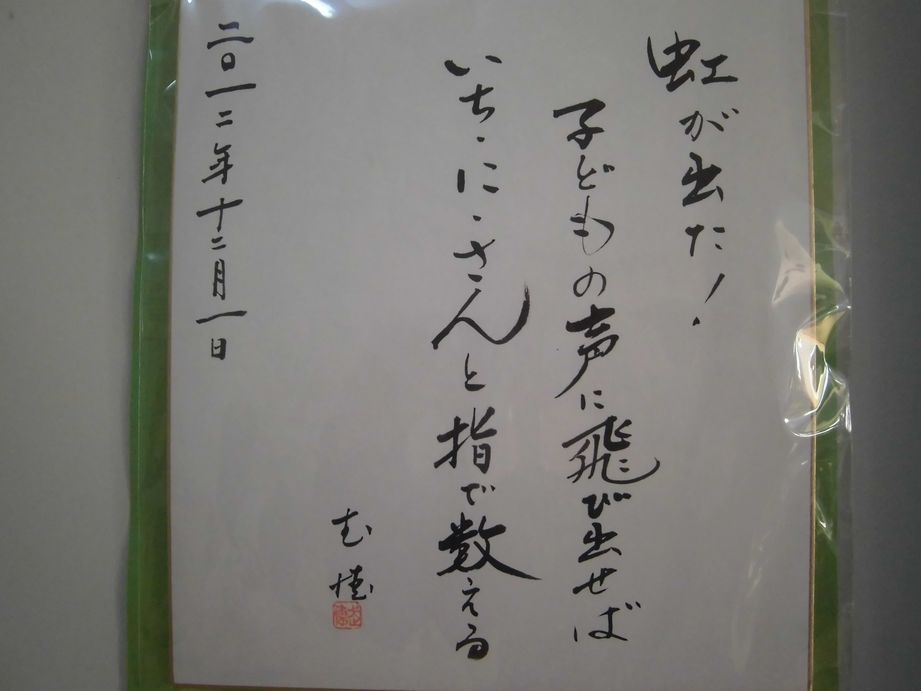 虹が出た！
子どもの声に飛び出せば
いち、に、さんと指で数える
二〇一二年十二月一日